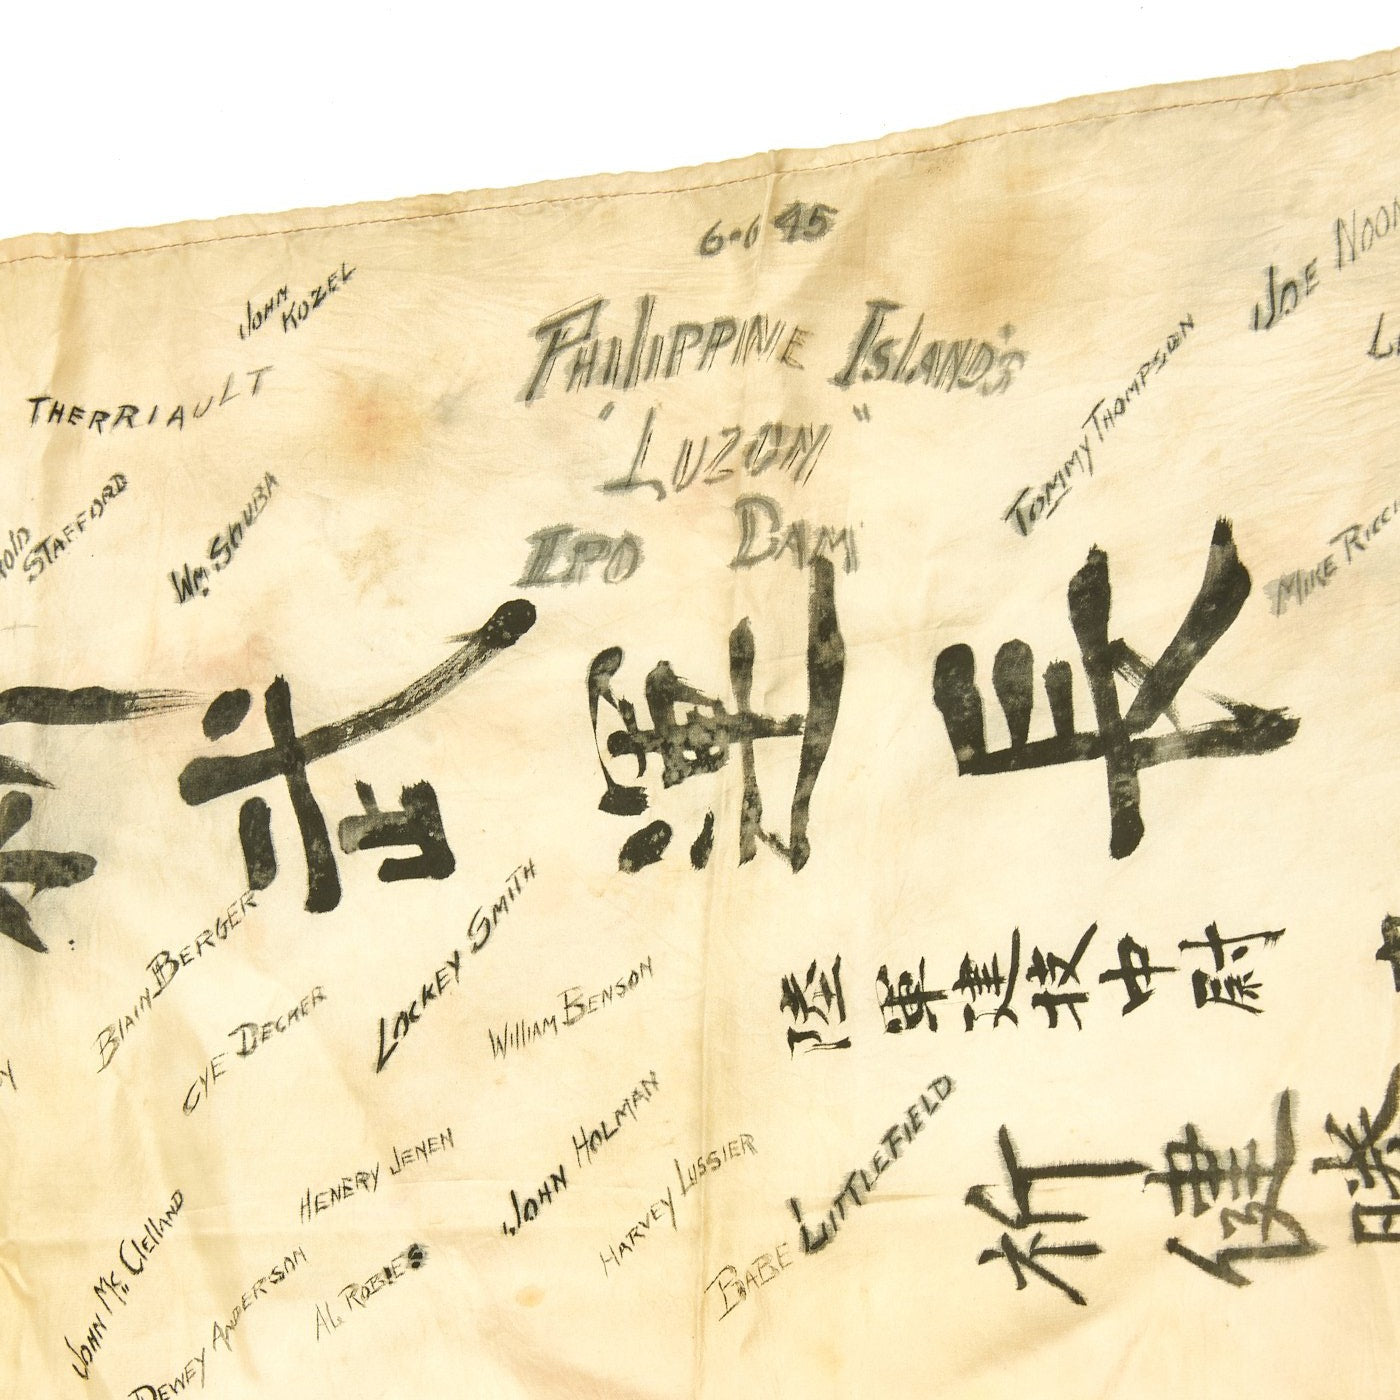 6-6 45
PHILIPPINE ISLAND'S
"LUZON"
IPO DAM
JOHN
KOZEL
THERRIAULT
STAFFORD
WM. SHUBA
TOMMY THOMPSON
JOE
MIKE
武運長
陸軍建技中尉
祈健勝
BLAIN BERGER
CYE DECHER
LOCKEY SMITH
WILLIAM BENSON
HENERY JENEN
JOHN HOLMAN
HARVEY LUSSIER
BABE LITTLEFIELD
JOHN Mc CLELLAND
DEWEY ANDERSON
AL ROBIES